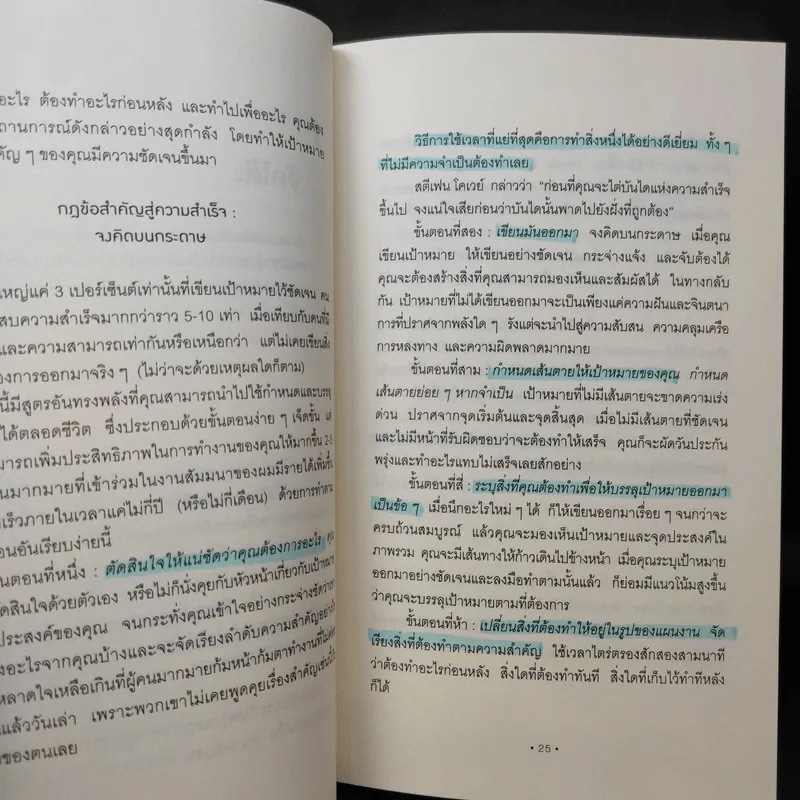 อะไร ต้องทำอะไรก่อนหลัง และทำไปเพื่ออะไร คุณต้อง
ถานการณ์ดังกล่าวอย่างสุดกำลัง โดยทำให้เป้าหมาย
คัญ ๆ ของคุณมีความชัดเจนขึ้นมา
กฎข้อสำคัญสู่ความสำเร็จ :
จงคิดบนกระดาษ
ใหญ่แค่ 3 เปอร์เซ็นต์เท่านั้นที่เขียนเป้าหมายไว้ชัดเจน คน
สบความสำเร็จมากกว่าราว 5-10 เท่า เมื่อเทียบกับคนที่มี
และความสามารถเท่ากันหรือเหนือกว่า แต่ไม่เคยเขียนสิ่ง
องการออกมาจริง ๆ (ไม่ว่าจะด้วยเหตุผลใดก็ตาม)
นี้มีสูตรอันทรงพลังที่คุณสามารถนำไปใช้กำหนดและบรรลุ
ได้ตลอดชีวิต ซึ่งประกอบด้วยขั้นตอนง่าย ๆ เจ็ดขั้น แต่
มารถเพิ่มประสิทธิภาพในการทำงานของคุณให้มากขึ้น 2-3
นมากมายที่เข้าร่วมในงานสัมมนาของผมมีรายได้เพิ่มขึ้น
เร็วภายในเวลาแค่ไม่กี่ปี (หรือไม่กี่เดือน) ด้วยการทำตาม
อนอันเรียบง่ายนี้
นตอนที่หนึ่ง : ตัดสินใจให้แน่ชัดว่าคุณต้องการอะไร
ตัดสินใจด้วยตัวเอง หรือไม่ก็นั่งคุยกับหัวหน้าเกี่ยวกับเป้าหมาย
ประสงค์ของคุณ จนกระทั่งคุณเข้าใจอย่างกระจ่างชัดว่า
งอะไรจากคุณบ้างและจะจัดเรียงลำดับความสำคัญอย่างไร
หลาดใจเหลือเกินที่ผู้คนมากมายก้มหน้าก้มตาทำงานที่ไม่
แล้ววันเล่า เพราะพวกเขาไม่เคยพูดคุยเรื่องสำคัญเช่นนี้
าของตนเลย
วิธีการใช้เวลาที่แย่ที่สุดคือการทำสิ่งหนึ่งได้อย่างดีเยี่ยม ทั้ง ๆ
ที่ไม่มีความจำเป็นต้องทำเลย
สตีเฟน โคเวย์ กล่าวว่า “ก่อนที่คุณจะไต่บันไดแห่งความสำเร็จ
ขึ้นไป จงแน่ใจเสียก่อนว่าบันไดนั้นพาดไปยังฝั่งที่ถูกต้อง”
ขั้นตอนที่สอง : เขียนมันออกมา จงคิดบนกระดาษ เมื่อคุณ
เขียนเป้าหมาย ให้เขียนอย่างชัดเจน กระจ่างแจ้ง และจับต้องได้
คุณจะต้องสร้างสิ่งที่คุณสามารถมองเห็นและสัมผัสได้ ในทางกลับ
กัน เป้าหมายที่ไม่ได้เขียนออกมาจะเป็นเพียงแค่ความฝันและจินตนา
การที่ปราศจากพลังใด ๆ รังแต่จะนำไปสู่ความสับสน ความคลุมเครือ
การหลงทาง และความผิดพลาดมากมาย
ขั้นตอนที่สาม : กำหนดเส้นตายให้เป้าหมายของคุณ กำหนด
เส้นตายย่อย ๆ หากจำเป็น เป้าหมายที่ไม่มีเส้นตายจะขาดความเร่ง
ด่วน ปราศจากจุดเริ่มต้นและจุดสิ้นสุด เมื่อไม่มีเส้นตายที่ชัดเจน
และไม่มีหน้าที่รับผิดชอบว่าจะต้องทำให้เสร็จ คุณก็จะผัดวันประกัน
พรุ่งและทำอะไรแทบไม่เสร็จเลยสักอย่าง
ขั้นตอนที่สี่ : ระบุสิ่งที่คุณต้องทำเพื่อให้บรรลุเป้าหมายออกมา
เป็นข้อ ๆ เมื่อนึกอะไรใหม่ ๆ ได้ ก็ให้เขียนออกมาเรื่อย ๆ จนกว่าจะ
ครบถ้วนสมบูรณ์ แล้วคุณจะมองเห็นเป้าหมายและจุดประสงค์ใน
ภาพรวม คุณจะมีเส้นทางให้ก้าวเดินไปข้างหน้า เมื่อคุณระบุเป้าหมาย
ออกมาอย่างชัดเจนและลงมือทำตามนั้นแล้ว ก็ย่อมมีแนวโน้มสูงขึ้น
ว่าคุณจะบรรลุเป้าหมายตามที่ต้องการ
ขั้นตอนที่ห้า : เปลี่ยนสิ่งที่ต้องทำให้อยู่ในรูปของแผนงาน จัด
เรียงสิ่งที่ต้องทำตามความสำคัญ ใช้เวลาไตร่ตรองสักสองสามนาที
ว่าต้องทำอะไรก่อนหลัง สิ่งใดที่ต้องทำทันที สิ่งใดที่เก็บไว้ทำทีหลัง
ก็ได้
• 25 •